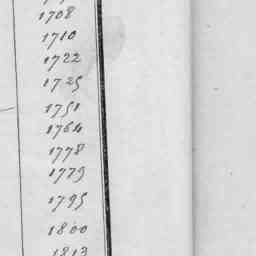 1708
1710
1722
1725
1751
1764
1778
1779
1795
1800
1813